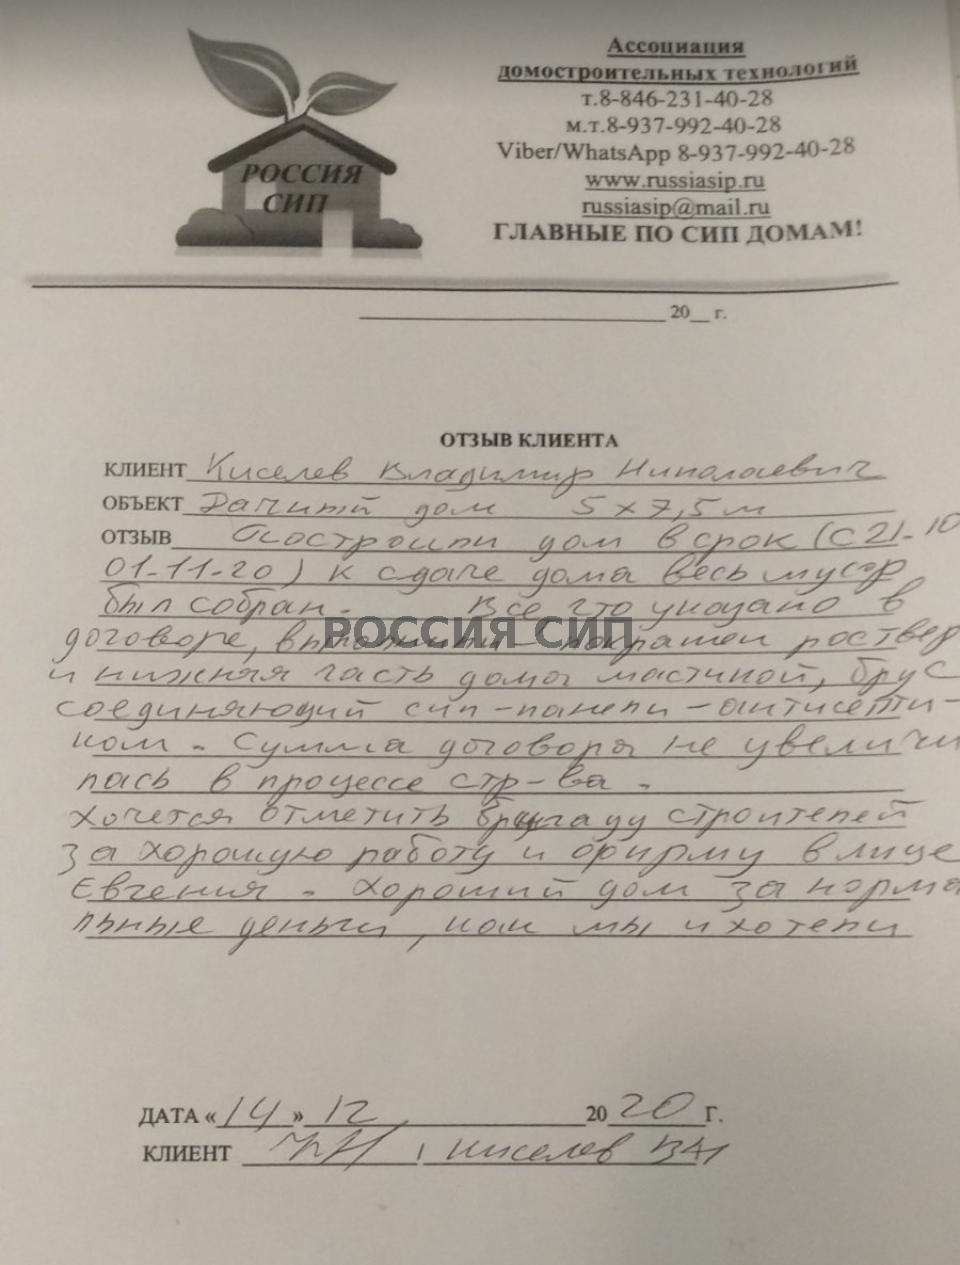 РОССИЯ
СИП
Ассоциация
домостроительных технологий
т.8-846-231-40-28
м.т.8-937-992-40-28
Viber/WhatsApp 8-937-992-40-28
www.russiasip.ru
russiasip@mail.ru
ГЛАВНЫЕ ПО СИП ДОМАМ!
20__ г.
ОТЗЫВ КЛИЕНТА
КЛИЕНТ Киселев Владимир Николаевич
ОБЪЕКТ Дачный дом 5 х 7,5 м
ОТЗЫВ Построили дом в срок (с 21-10
01-11-20) к сдаче дома весь мусор
был собран. Все что указано в
договоре, выполнили - покрашен роствер
и нижняя часть дома мастикой, брус
соединяющий сип-панели - антисепти-
ком. Сумма договора не увеличи
лась в процессе стр-ва.
Хочется отметить бригаду строителей
за хорошую работу и фирму в лице
Евгения. Хороший дом за норма
льные деньги, как мы и хотели
РОССИЯ СИП
ДАТА «14» 12 2020 Г.
КЛИЕНТ Киселев ВН